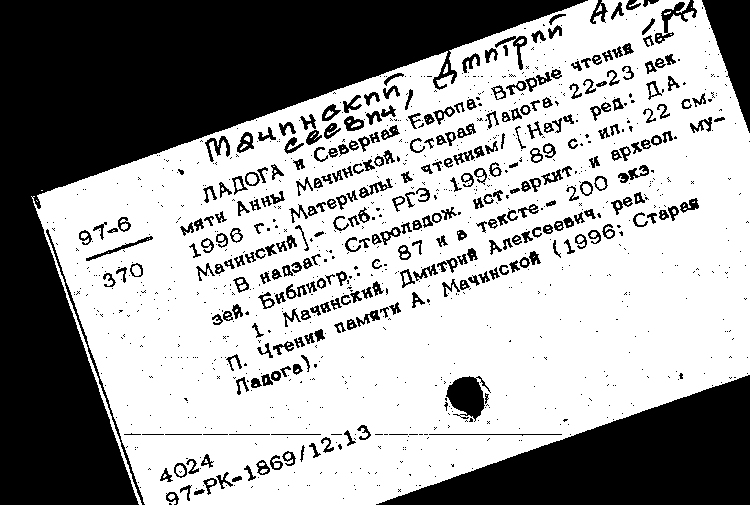 Мачинский, Дмитрий Алек
сеевич, ред
97-6
370
ЛАДОГА и Северная Европа: Вторые чтения па-
мяти Анны Мачинской, Старая Ладога, 22-23 дек.
1996 г.: Материалы к чтениям/ [Науч. ред.: Д.А.
Мачинский].- Спб.: РГЭ, 1996.- 89 с.: ил.; 22 см.
В надзаг.: Староладож. ист.-архит. и археол. му-
зей. Библиогр.: с. 87 и в тексте.- 200 экз.
1. Мачинский, Дмитрий Алексеевич, ред.
П. Чтения памяти А. Мачинской (1996; Старая
Ладога).
4024
97-РК-1869/12,13